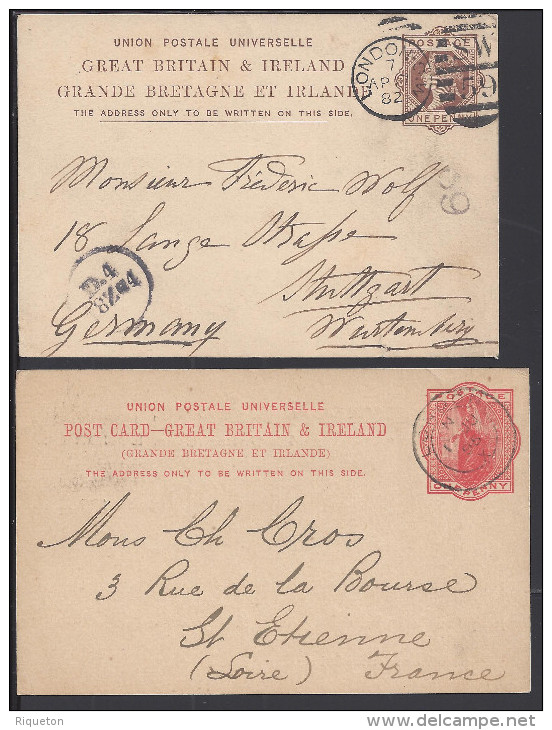 UNION POSTALE UNIVERSELLE
GREAT BRITAIN & IRELAND
GRANDE BRETAGNE ET IRLANDE
THE ADDRESS ONLY TO BE WRITTEN ON THIS SIDE.
POSTAGE
ONE PENNY
LONDON
7
AP
82
W
59
Monsieur Fréderic Wolf
18 Lange Strasse
Stuttgart
Germany Wurtemberg
UNION POSTALE UNIVERSELLE
POST CARD—GREAT BRITAIN & IRELAND
(GRANDE BRETAGNE ET IRLANDE)
THE ADDRESS ONLY TO BE WRITTEN ON THIS SIDE.
POSTAGE
ONE PENNY
Mons Ch Cros
3 Rue de la Bourse
St Etienne
(Loire) France
Riqueton
delcampe.net